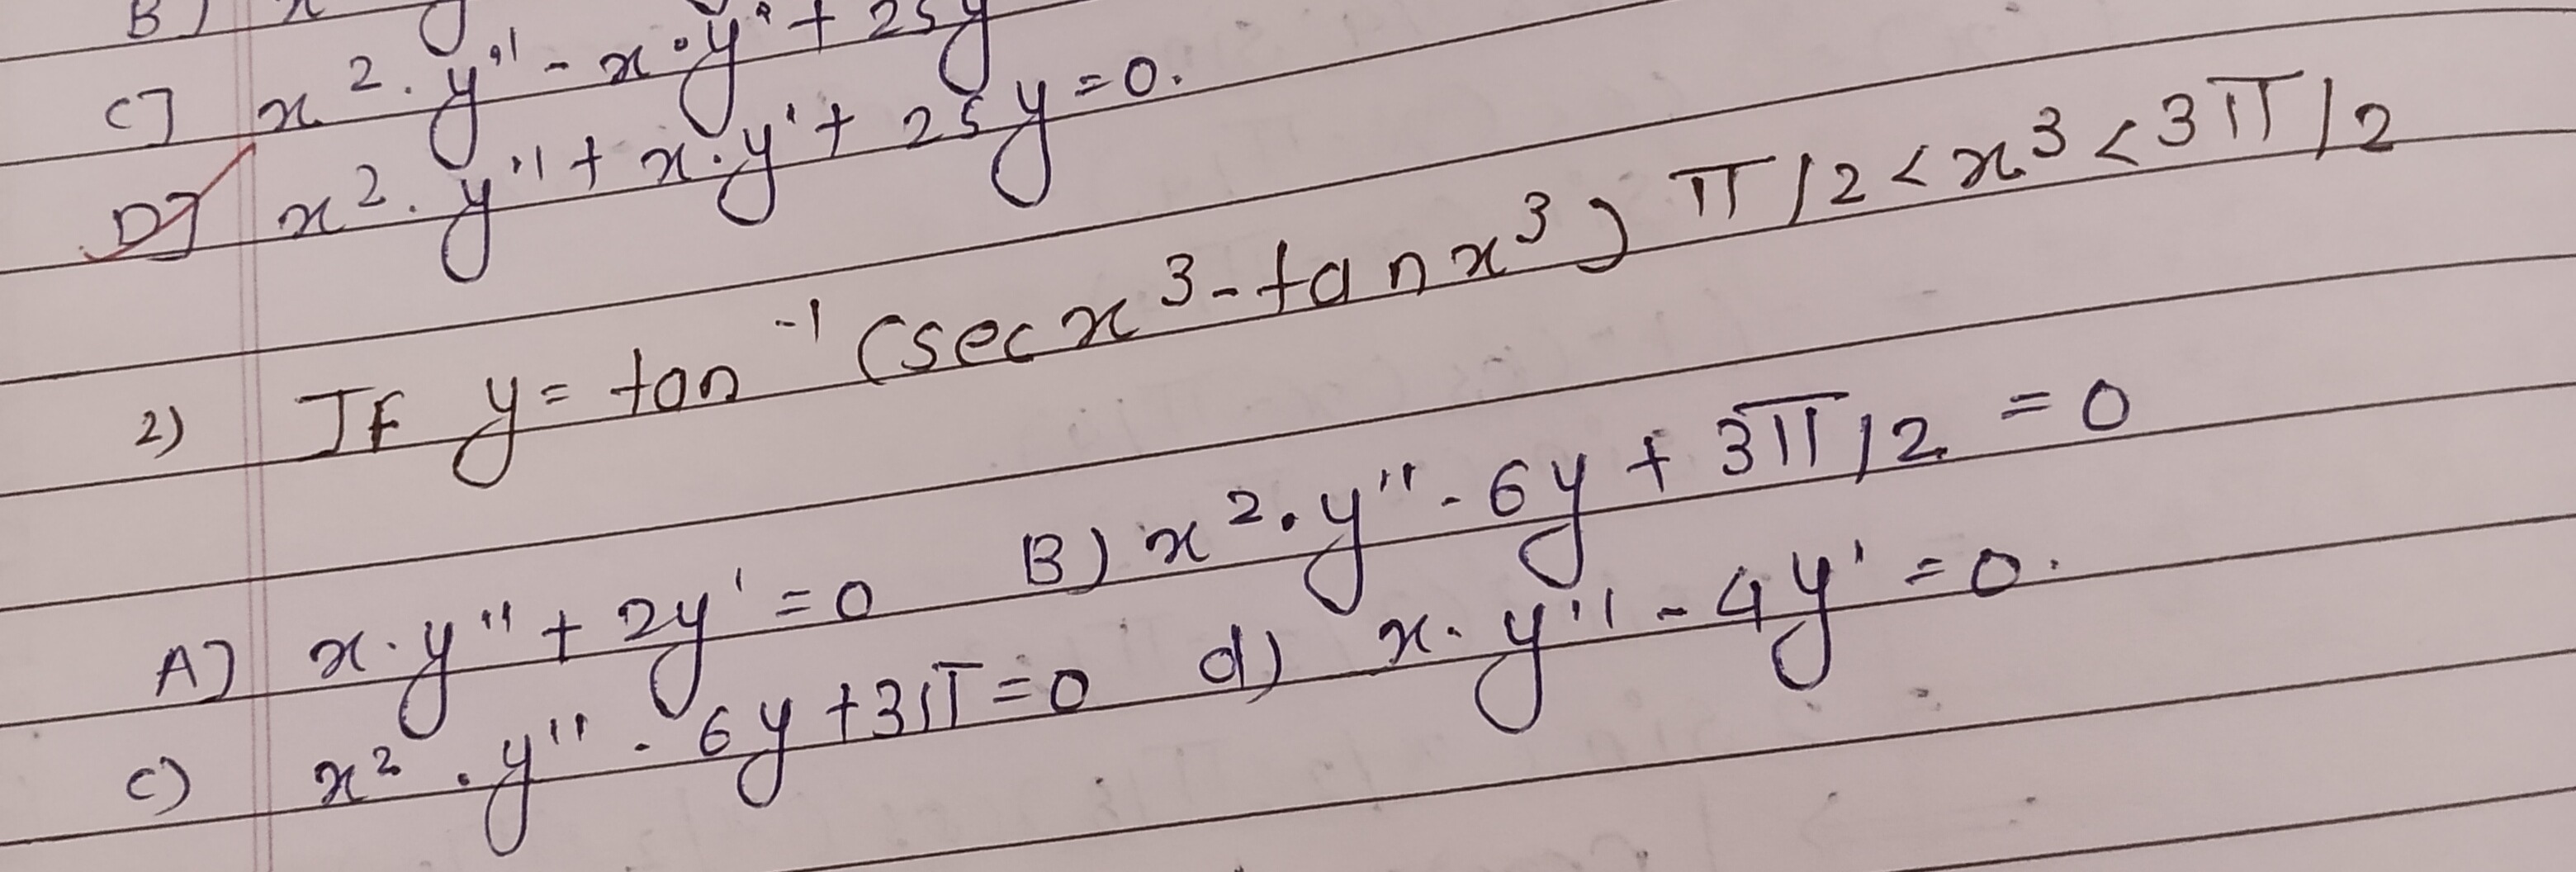 B) x
C] x². y'' - x·y' + 25y
D] x². y'' + x.y' + 25y = 0.
2) IF y = tan⁻¹ (sec x³ - tan x³) π/2 < x³ < 3π/2
A] x. y'' + 2y' = 0 B) x². y'' - 6y + 3π/2 = 0
C) x². y'' - 6y + 3π = 0 d) x. y'' - 4y' = 0.